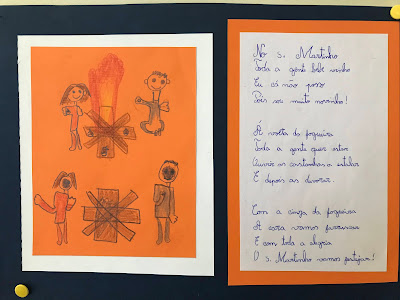 No S. Martinho
Toda a gente bebe vinho
Eu cá não posso
Pois sou muito novinho!
À volta da fogueira
Toda a gente quer estar
Ouvir as castanhas a estalar
E depois as devorar.
Com a cinza da fogueira
A cara vamos farruscar
E com toda a alegria
O S. Martinho vamos festejar!